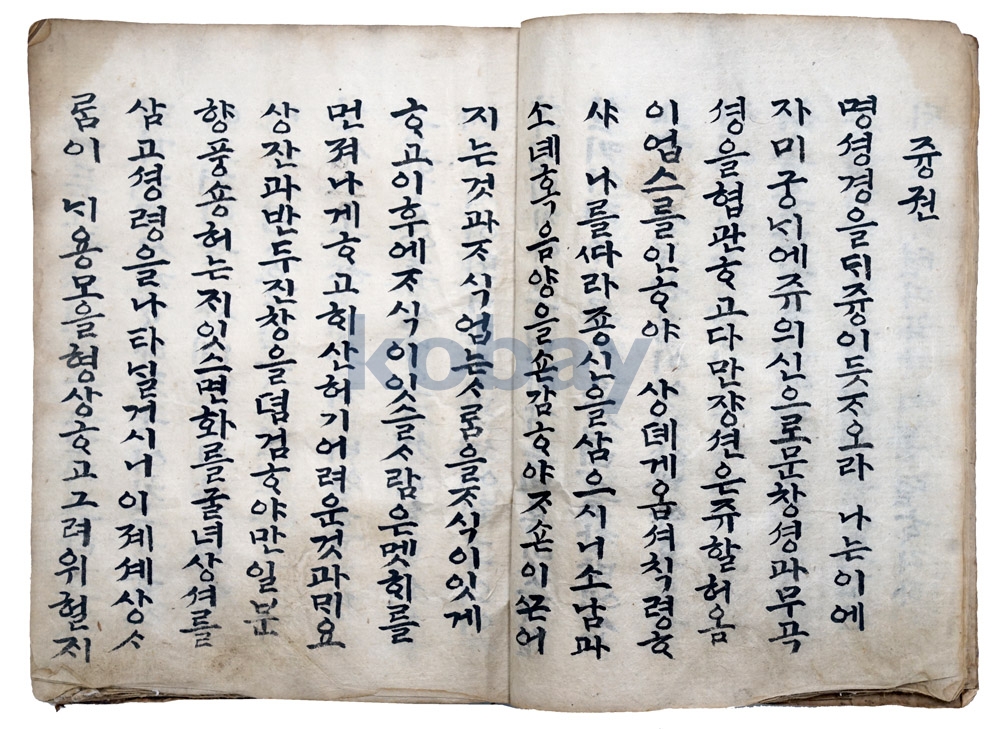 즁권
명셩경을ᄃᆡ즁이듯ᄌᆞ오라 나는이에
자미궁ᄂᆡ에쥬의신으로문창셩과무곡
셩을협관ᄒᆞ고다만쟝션은쥬할허옴
이업스를인ᄒᆞ야 상뎨게옴셔칙령ᄒᆞ
샤 나를ᄯᅡ라죵신을삼으시니소남과
소녜혹음양을손감ᄒᆞ야ᄌᆞ손이ᄭᅳᆫ어
지는것과ᄌᆞ식업는ᄉᆞ룸을ᄌᆞ식이잇게
ᄒᆞ고이후에ᄌᆞ식이잇슬ᄉᆞ람은멧ᄒᆡ를
먼져나게ᄒᆞ고ᄒᆡ산허기어려운것과ᄆᆡ요
상잔과반두진창을뎝겸ᄒᆞ야만일분
향풍숑허는ᄌᆡ잇스면화를굴녀상셔를
삼고셩령을나타ᄂᆡᆯ거시니이졔셰상ᄉᆞ
룸이 ᄂᆡ용모을형상ᄒᆞ고그려위헐지
kobay